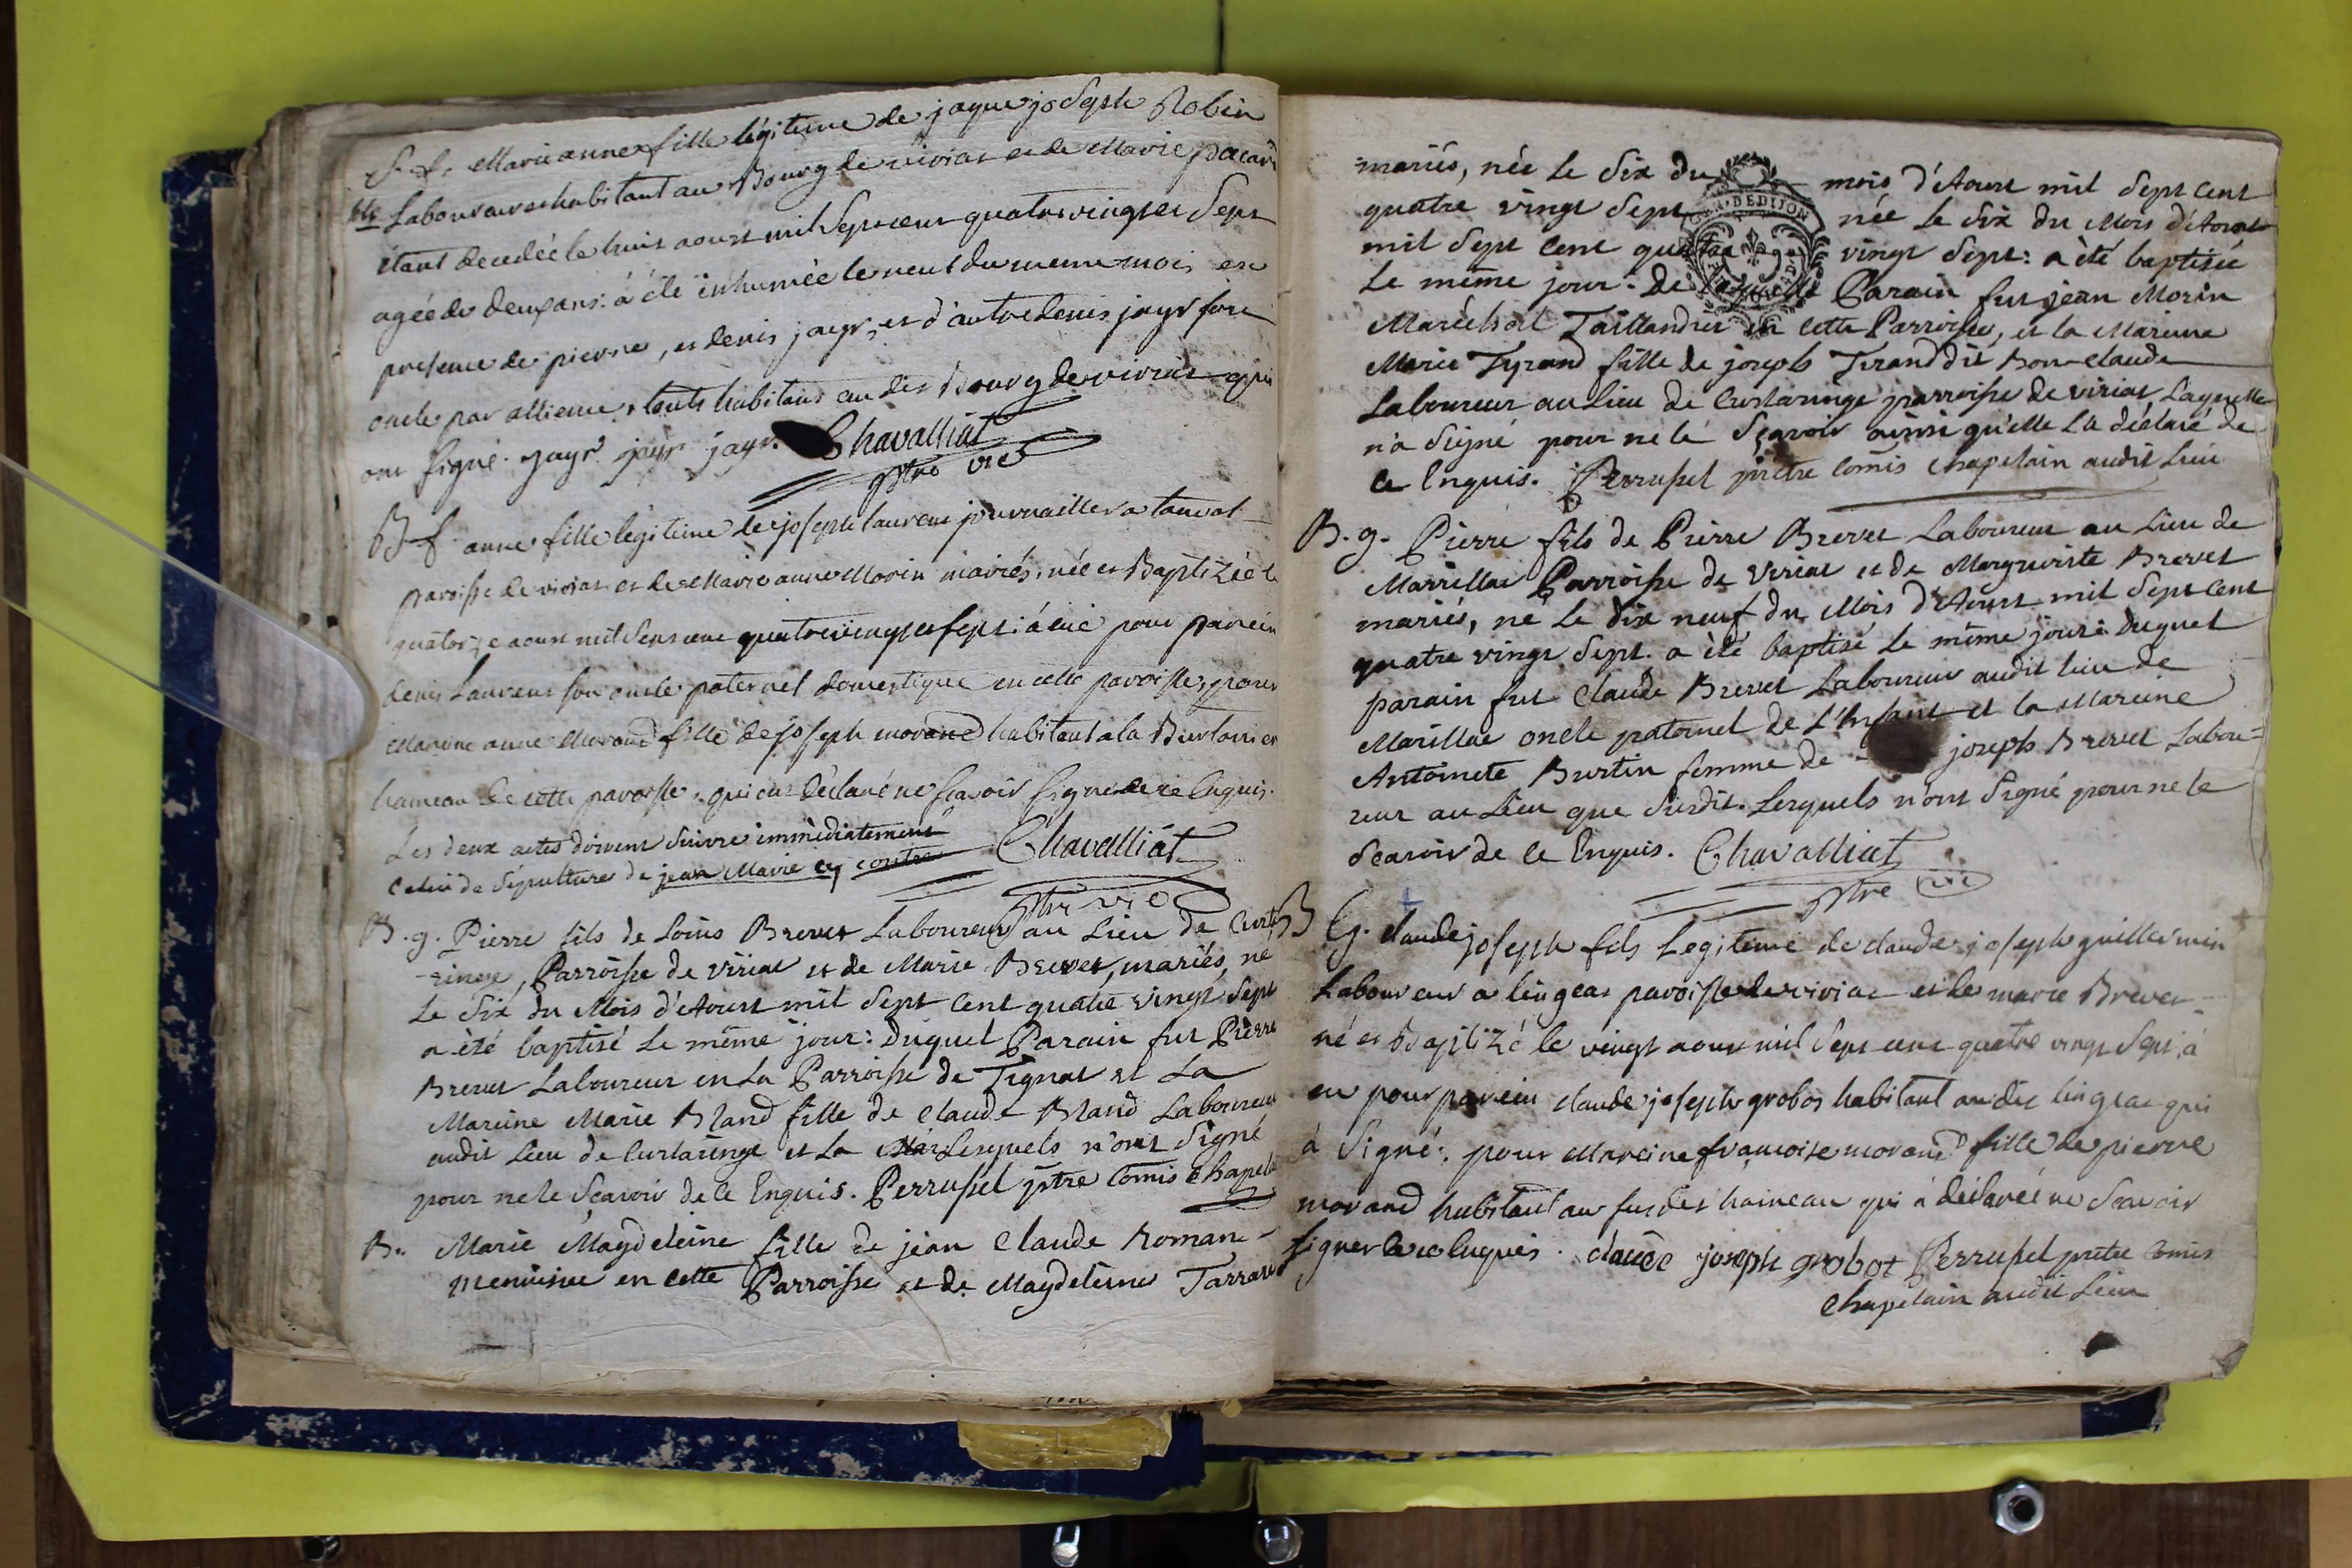 S. f. Marie anne fille légitime de jaque joseph Robin
Laboureur habitant au Bourg de viriat et de Marie pacard
étant decedée le huit aoust mil sept cent quatre vingt et sept
agée de deux ans: a été inhumée le neuf du meme mois, en
presence de pierre, et denis jayr, et d'autre denis jayr son
oncle par alliance, touts habitans au dit Bourg de viriat qui
ont signé. jayr jayr jayr. Chavalliat
ptre vic
B. f. anne fille légitime de joseph laurent journaillier a
paroisse de viriat et de Marie anne Morin mariés, née et Baptizée le
quatorze aoust mil sept cent quatre vingt et sept: a eu pour parein
denis Laurent son oncle paternel domestique en cette paroisse, pour
Mareine anne Morand fille de joseph morand habitant a la
hameau de cette paroisse, qui ont déclaré ne scavoir signer de ce Enquis.
Les deux actes doivent suivre immédiatement Chavalliat
Celui de Sépulture de jean Marie cy contre
ptre vic
B. g. Pierre fils de Loüis Brevet Laboureur au Lieu de Curta
-ringe, Parroisse de Viriat et de Marie Brevet, mariés, né
Le Six du Mois d'Aoust mil Sept Cent quatre vingt Sept
a été baptisé Le même jour: Duquel Parain fut Pierre
Brevet Laboureur en La Parroisse de Tignat et La
Mareine Marie Bland fille de Claude Bland Laboureur
audit Lieu de Curtaringe et La Lesquels n'ont Signé
pour ne le Sçavoir de ce Enquis. Perrussel ptre Comis Chapelain
B.. Marie Magdeleine fille de jean Claude Romane-
Menuisier en cette Parroisse et de Magdeleine
mariés, née Le Six du mois d'Aoust mil Sept Cent
quatre vingt Sept née le Six du Mois d'Aoust
mil Sept Cent quatre vingt Sept: a été baptisée
Le même jour: De Laquelle Parain fut jean Morin
Maréchal Taillandier en cette Parroisse, et la Mareine
Marie Tyrand fille de joseph Tirand dit Bon-Claude
Laboureur au Lieu de Curtaringe parroisse de viriat Laquelle
n'a Signé pour ne le Sçavoir ainsi qu'elle L'a déclaré de
ce Enquis. Perrussel prêtre Comis Chapelain audit Lieu
B. g. Pierre fils de Pierre Brevet Laboureur au Lieu de
Marillat Parroisse de Viriat et de Margueritte Brevet
mariés, né Le Dix neuf du Mois d'Aoust mil Sept Cent
quatre vingt Sept. a été baptisé Le même jour: Duquel
parain fut Claude Brevet Laboureur audit Lieu de
Marillat oncle paternel de L'Enfant et la Mareine
Antoinete Burtin femme de joseph Brevet Labou=
reur au Lieu que Susdit. Lesquels n'ont Signé pour ne le
Scavoir de ce Enquis. Chavalliat
ptre vic
B g. Claude joseph fils Legitime de claude joseph guillermin
Laboureur a lingeat paroisse de viriat et de marie Brevet
né et Baptizé le vingt aoust mil Sept cent quatre vingt Sept, a
eu pour parein claude joseph grobos habitant au dit lingeat qui
à Signé: pour Mareine françoise morand fille de pierre
morand habitant au susdit hameau qui a déclarée ne Scavoir
signer de ce Enquis. claude joseph grobot Perrussel pretre Comis
Chapelain audit Lieu